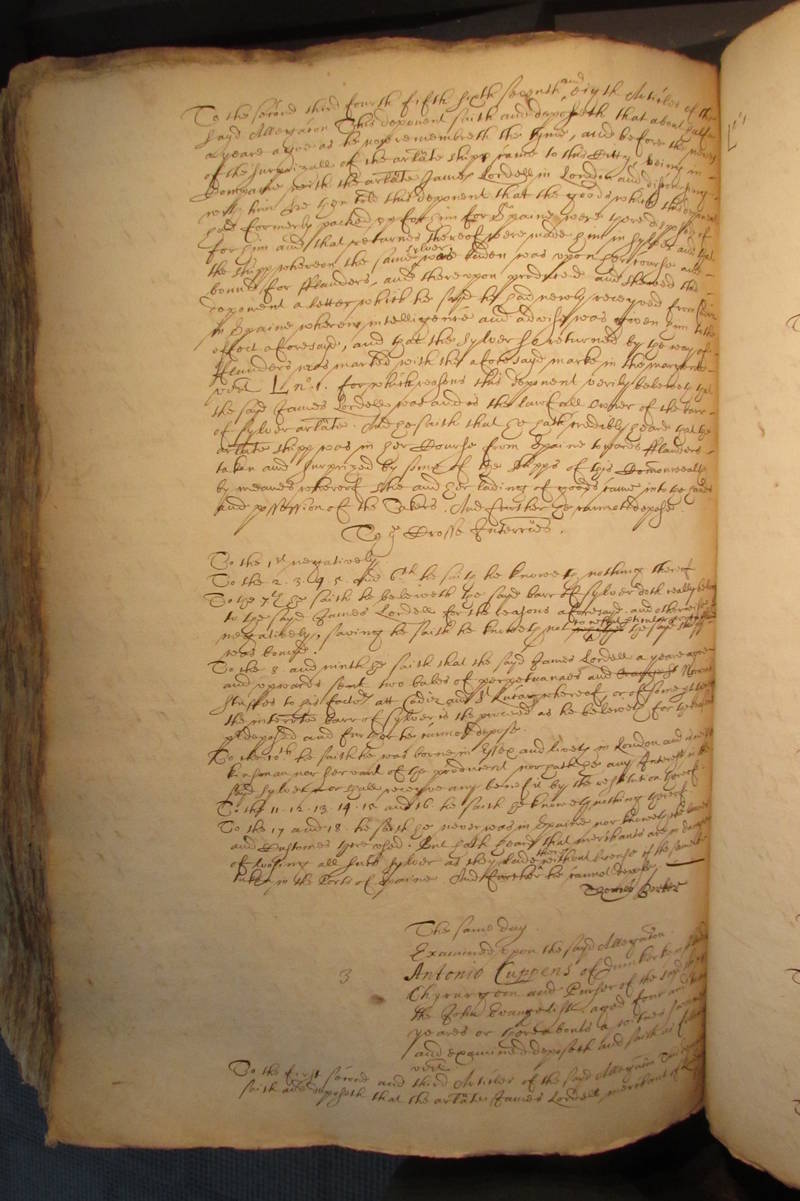 To the second third fourth fifth sixth seventh and eigth Articles of the
sayd Allegation This deponent saith and deposeth that about halfe
a yeare agoe as he now remembreth the tyme, and before the newes
of the surprizall of the arlate shipp came to this Citty, being in
Companie with the arlate James Lordell in London and discoursing
with him hee then told this deponent that the goods which this deponent
had formerly packed up for him for Spaine were there disposed of
for him and that returnes thereof were made him in sylver and that
the shipp whereon the same sylver was laden was upon her course and
bound for fflanders, and thereupon produced and shewed this
deponent a letter which he sayd he had newly receyved from
in Spaine wherein intelligence and advise was given him to the
effect aforesayd, and that the sylver so returned by the way of
fflanders was marked with the aforesayd marke in the margent
vizt L no. 1. for which reasons this deponent verily beleeveth that
the sayd James Lordell was and is the lawfull Owner of the barr
of sylver arlate. And he saith that he hath credibly heard that the
arlate shipp was in her Course from Spaine towards fflanders
taken and surprized by some of the shipps of this Comonwealth
by meanes whereof shee and her lading of goods came into the hands
and possession of the Takers. And further he cannot depose.
To the Crosse Interries.
To the 1st negatively
To the 2. 3. 4. 5. and 6th he saith he knoweth nothing thereof
To the 7th he saith he beleeveth the sayd barr of sylver doth really belong
to the sayd James Lordell for the reasons aforesayd. and otherwise
negatively, saving he saith he knoweth not to what the sayd shipp
was bound.
To the 8 and ninth he saith that the sayd James Lordell a yeare agoe
and upwards sent two bales of perpetuanaes and Norwich
stuffes to his factors att Cadiz and St Lucar whereof, or of some other
the interate barr of sylver is the proceed as he beleeveth for the reasons
predeposed and further he cannot depose.
To the 10th he saith he was borne in Essex and liveth in London and is neither
kinsman nor servant of the producent nor hath he any Interest in the
sayd sylver nor shall receyve any benefitt by the restitution thereof.
To the 11. 12. 13. 14. 15 and 16. he saith he knoweth nothing thereof
To the 17 and 18. he saith he never was in Spaine nor knoweth the lawes
and Customes there used. But hath heard that merchants are in danger
of loosing all such sylver as they lade there without licence if the same be
taken in the Ports of Spaine And further he cannot depose
Thomas
The same day.
Examined upon the sayd Allegation.
3
Antonio Cuppens of Dunkerke
Chyrurgeon and Purser of the sayd shipp
the John Evangelist aged four and
yeares or thereabouts a witnes sworne
and examined deposeth and saith as followeth
vizt
To the first second and third Articles of the sayd Allegation This deponent
saith and deposeth that the arlate James Lordell merchant of